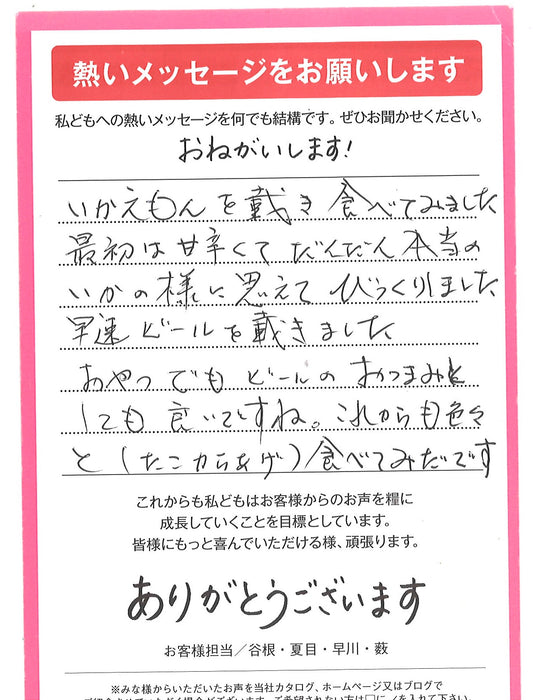 熱いメッセージをお願いします
私どもへの熱いメッセージを何でも結構です。ぜひお聞かせください。
おねがいします!
いかえもんを戴き食べてみました
最初は甘辛くてだんだん本当の
いかの様に思えてびっくりしました
早速ビールを戴きました
おやつでもビールのおつまみと
しても良いですね。これからも色々
と(たこからあげ)食べてみたいです
これからも私どもはお客様からのお声を糧に
成長していくことを目標としています。
皆様にもっと喜んでいただける様、頑張ります。
ありがとうございます
お客様担当/谷根・夏目・早川・薮
※みな様からいただいたお声を当社カタログ、ホームページ又はブログで